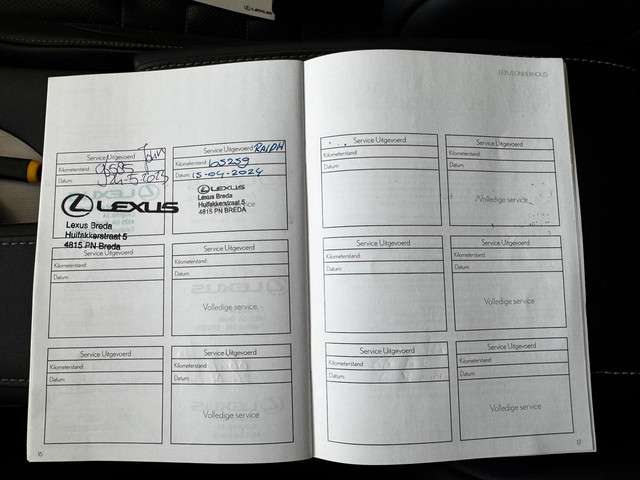 LEXUS ONDERHOUD
Service Uitgevoerd
John
Kilometerstand:
Datum:
LEXUS
Lexus Breda
Huifakkerstraat 5
4815 PN Breda
Service Uitgevoerd
RALPH
Kilometerstand: 105259
Datum: 15-04-2024
LEXUS
Lexus Breda
Huifakkerstraat 5
4815 PN BREDA
service
Service Uitgevoerd
Kilometerstand:
Datum:
Service Uitgevoerd
Kilometerstand:
Datum:
Volledige service
Service Uitgevoerd
Kilometerstand:
Datum:
Service Uitgevoerd
Kilometerstand:
Datum:
Volledige service
16
Service Uitgevoerd
Kilometerstand:
Datum:
Service Uitgevoerd
Kilometerstand:
Datum:
Volledige service
Service Uitgevoerd
Kilometerstand:
Datum:
Service Uitgevoerd
Kilometerstand:
Datum:
Volledige service
Service Uitgevoerd
Kilometerstand:
Datum:
Service Uitgevoerd
Kilometerstand:
Datum:
Volledige service
17